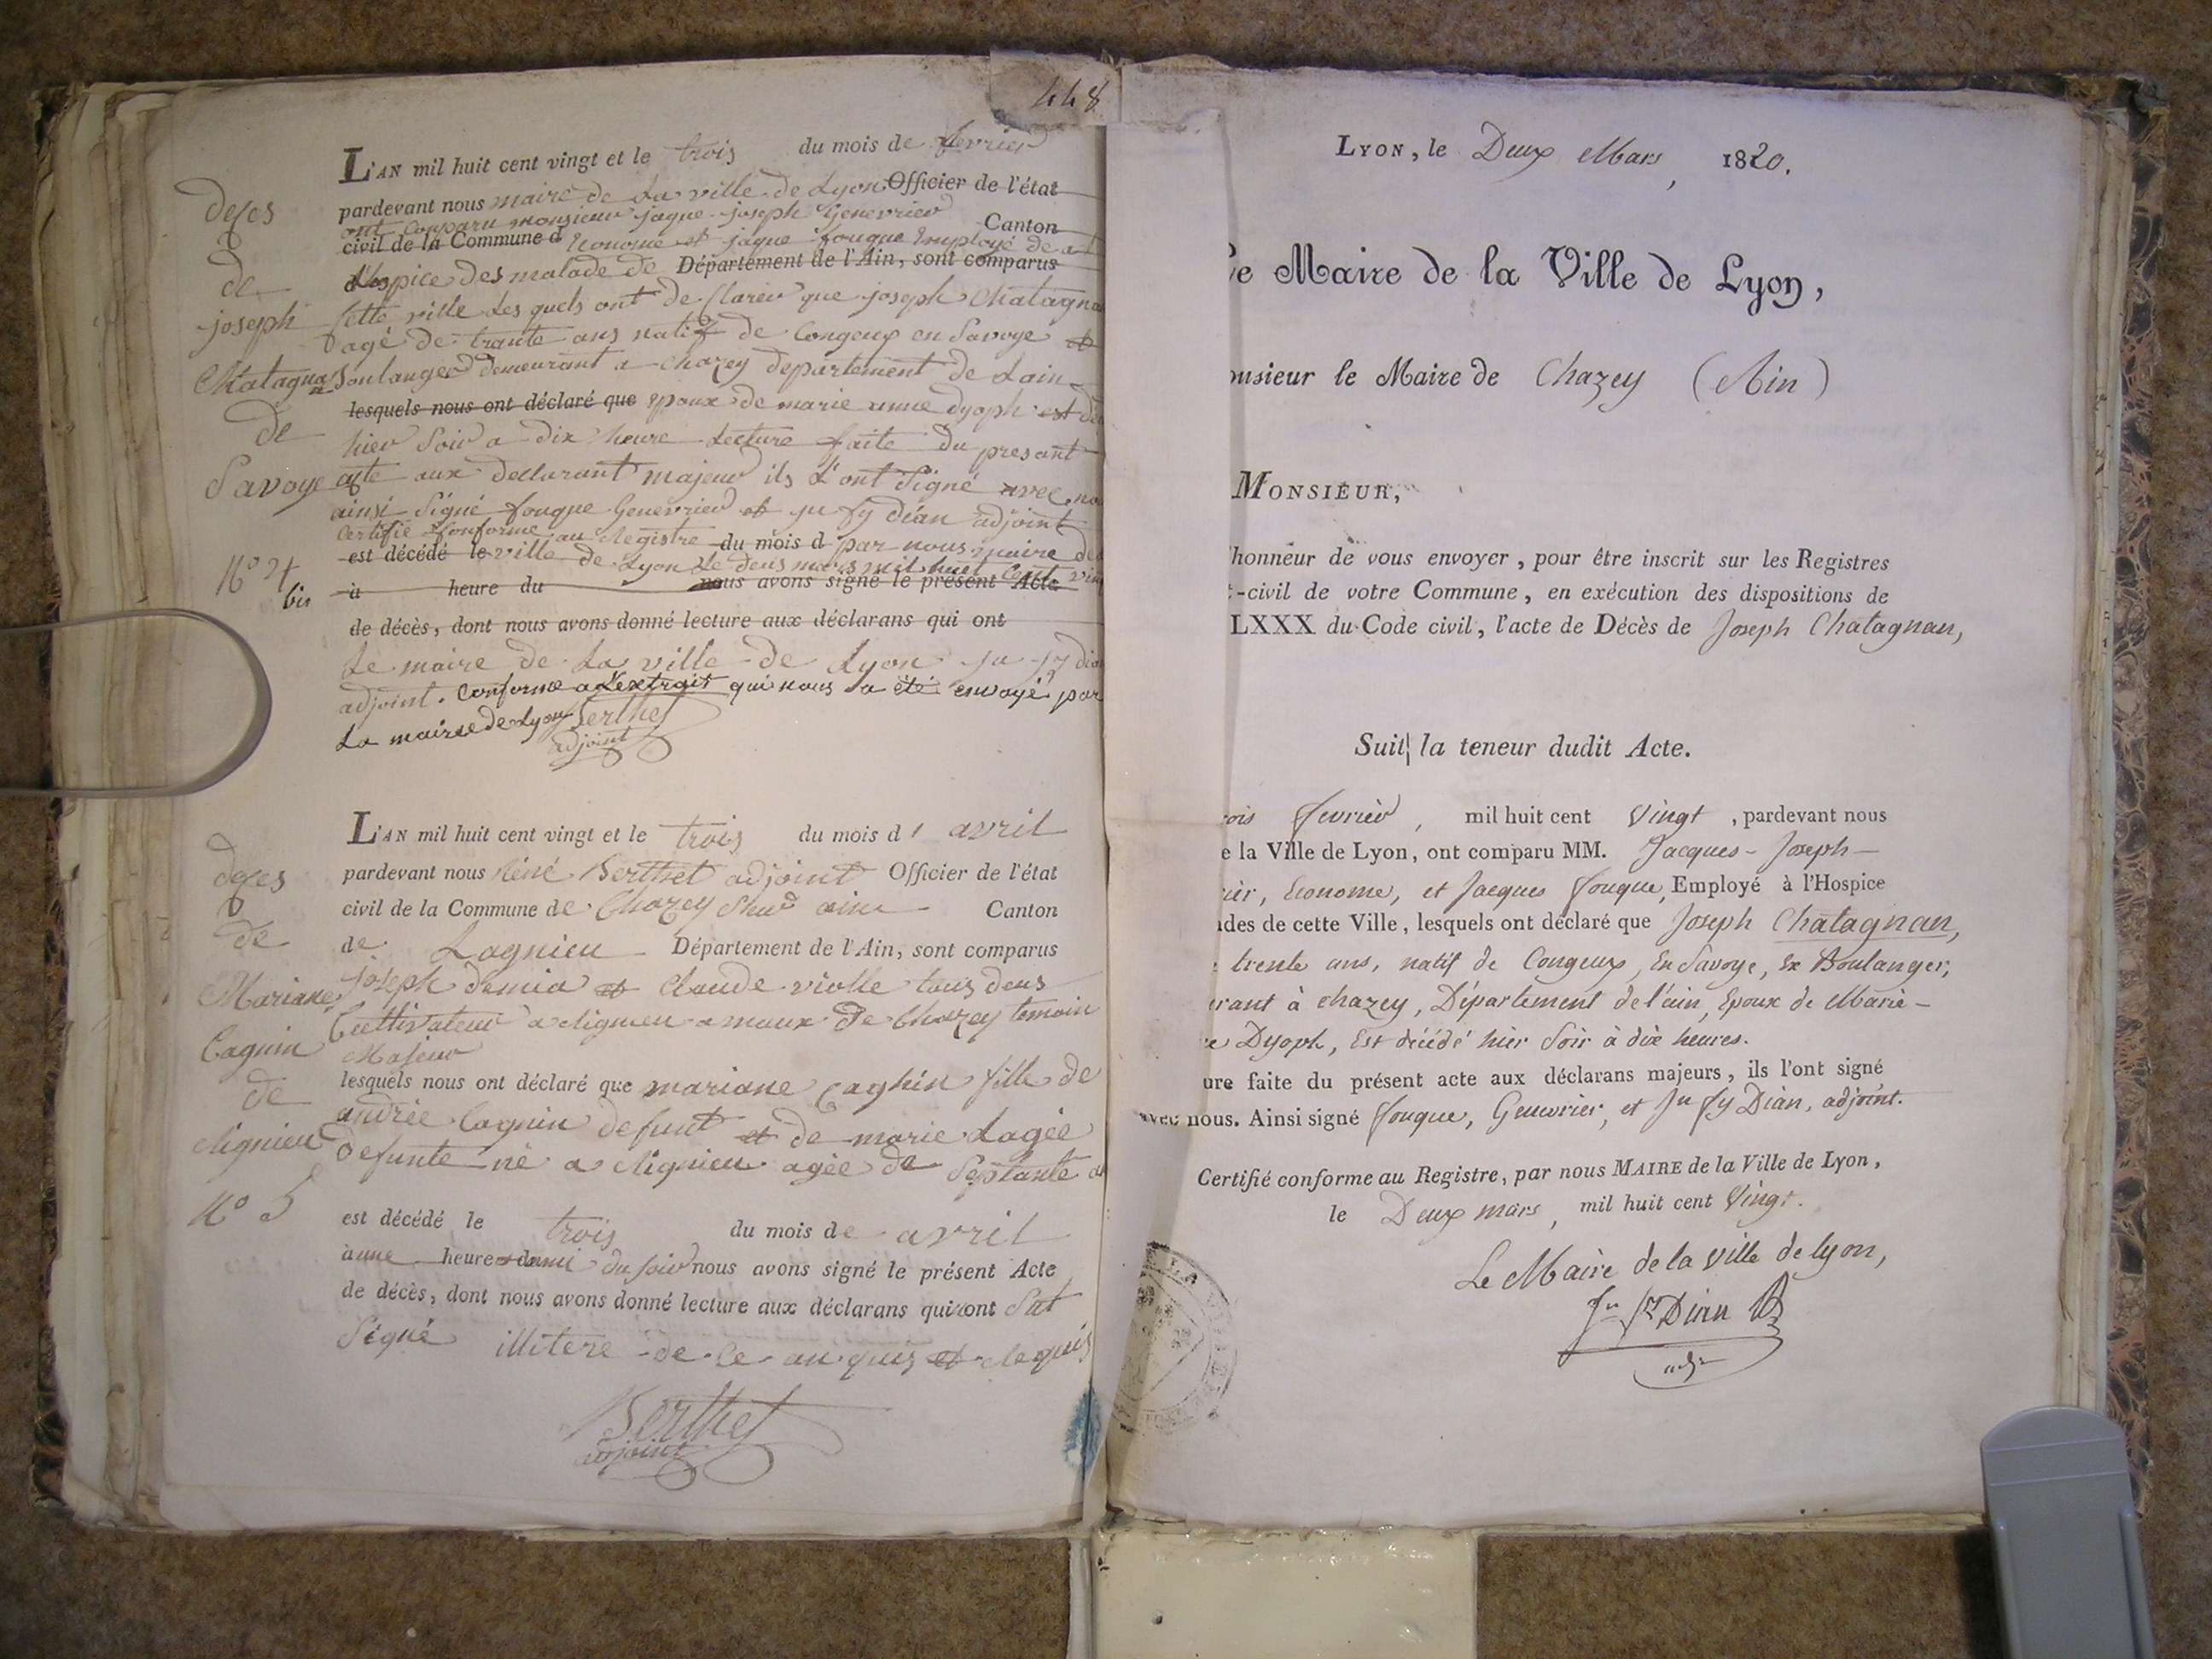 448
L'AN mil huit cent vingt et le trois du mois de fevrier
pardevant nous maire de La ville de Lyon Officier de l'état
ont Conparu monsieur jaque joseph Genevrier
civil de la Commune d Canton
Econome et jaque fouque Employé de a
L'hospice des malade de Département de l'Ain, sont comparus
Cette ville Les quels ont de Clarer que joseph Chatagna
agé de trante ans natif de Congeux en Savoye et
Boulanger demeurant a chazey departement de Lain
lesquels nous ont déclaré que epoux de marie anne dyoph est dé
hier Soir a dix heure Lecture faite du presant
acte aux declarant majeur ils L'ont Signé avec no
ainsi Signé fouque Genevrier et jn fy dian adjoint
Certifié Conforme au Registre
est décédé le du mois d par nous maire de
ville de Lyon Le deus mars mil huit Cent vin
à heure du nous avons signé le présent Acte
de décès, dont nous avons donné lecture aux déclarans qui ont
Le maire de La ville de Lyon jn fy dia
adjoint. Conforme a L'extrait qui nous a été envoyé par
La mairie de Lyon Berthet
adjoint
deces
de
joseph
Chatagnan
De
Savoye
N° 4
bis
L'AN mil huit cent vingt et le trois du mois d' avril
pardevant nous Réné Berthet adjoint Officier de l'état
civil de la Commune de Chazey Canton
de Lagnieu Département de l'Ain, sont comparus
joseph demia et Claude violle tous deus
Cultivateur a Rignieu amaux De Chazey temoin
Majeur
lesquels nous ont déclaré que mariane Cagnin fille de
andrée Cagnin defunt et de marie Lagée
Defunte né a Rignieu agée de Septante a
est décédé le trois du mois de avril
à une heure demi du soir nous avons signé le présent Acte
de décès, dont nous avons donné lecture aux déclarans qui ont
Signé illitere de Ce en quis et Requis
Berthet
adjoint
deces
de
Mariane
Cagnin
de
Rignieu
N° 5
LYON, le Deux Mars, 1820.
e Maire de la Ville de Lyon,
onsieur le Maire de Chazey (Ain)
MONSIEUR,
honneur de vous envoyer, pour être inscrit sur les Registres
-civil de votre Commune, en exécution des dispositions de
LXXX du Code civil, l'acte de Décès de Joseph Chatagnan,
Suit la teneur dudit Acte.
ois fevrier, mil huit cent Vingt, pardevant nous
e la Ville de Lyon, ont comparu MM. Jacques-Joseph-
ier, Econome, et Jacques fouque, Employé à l'Hospice
des de cette Ville, lesquels ont déclaré que Joseph Chatagnan,
trente ans, natif de Congeux, En Savoye, Ex Boulanger,
rant à chazey, Département de l'ain, Epoux de Marie-
e Dyoph, Est décédé hier Soir à dix heures.
ure faite du présent acte aux déclarans majeurs, ils l'ont signé
avec nous. Ainsi signé fouque, Genevrier, et Jn fy Dian, adjoint.
Certifié conforme au Registre, par nous MAIRE de la Ville de Lyon,
le Deux mars, mil huit cent Vingt.
Le Maire de la ville de lyon,
Jn fy Dian
adj